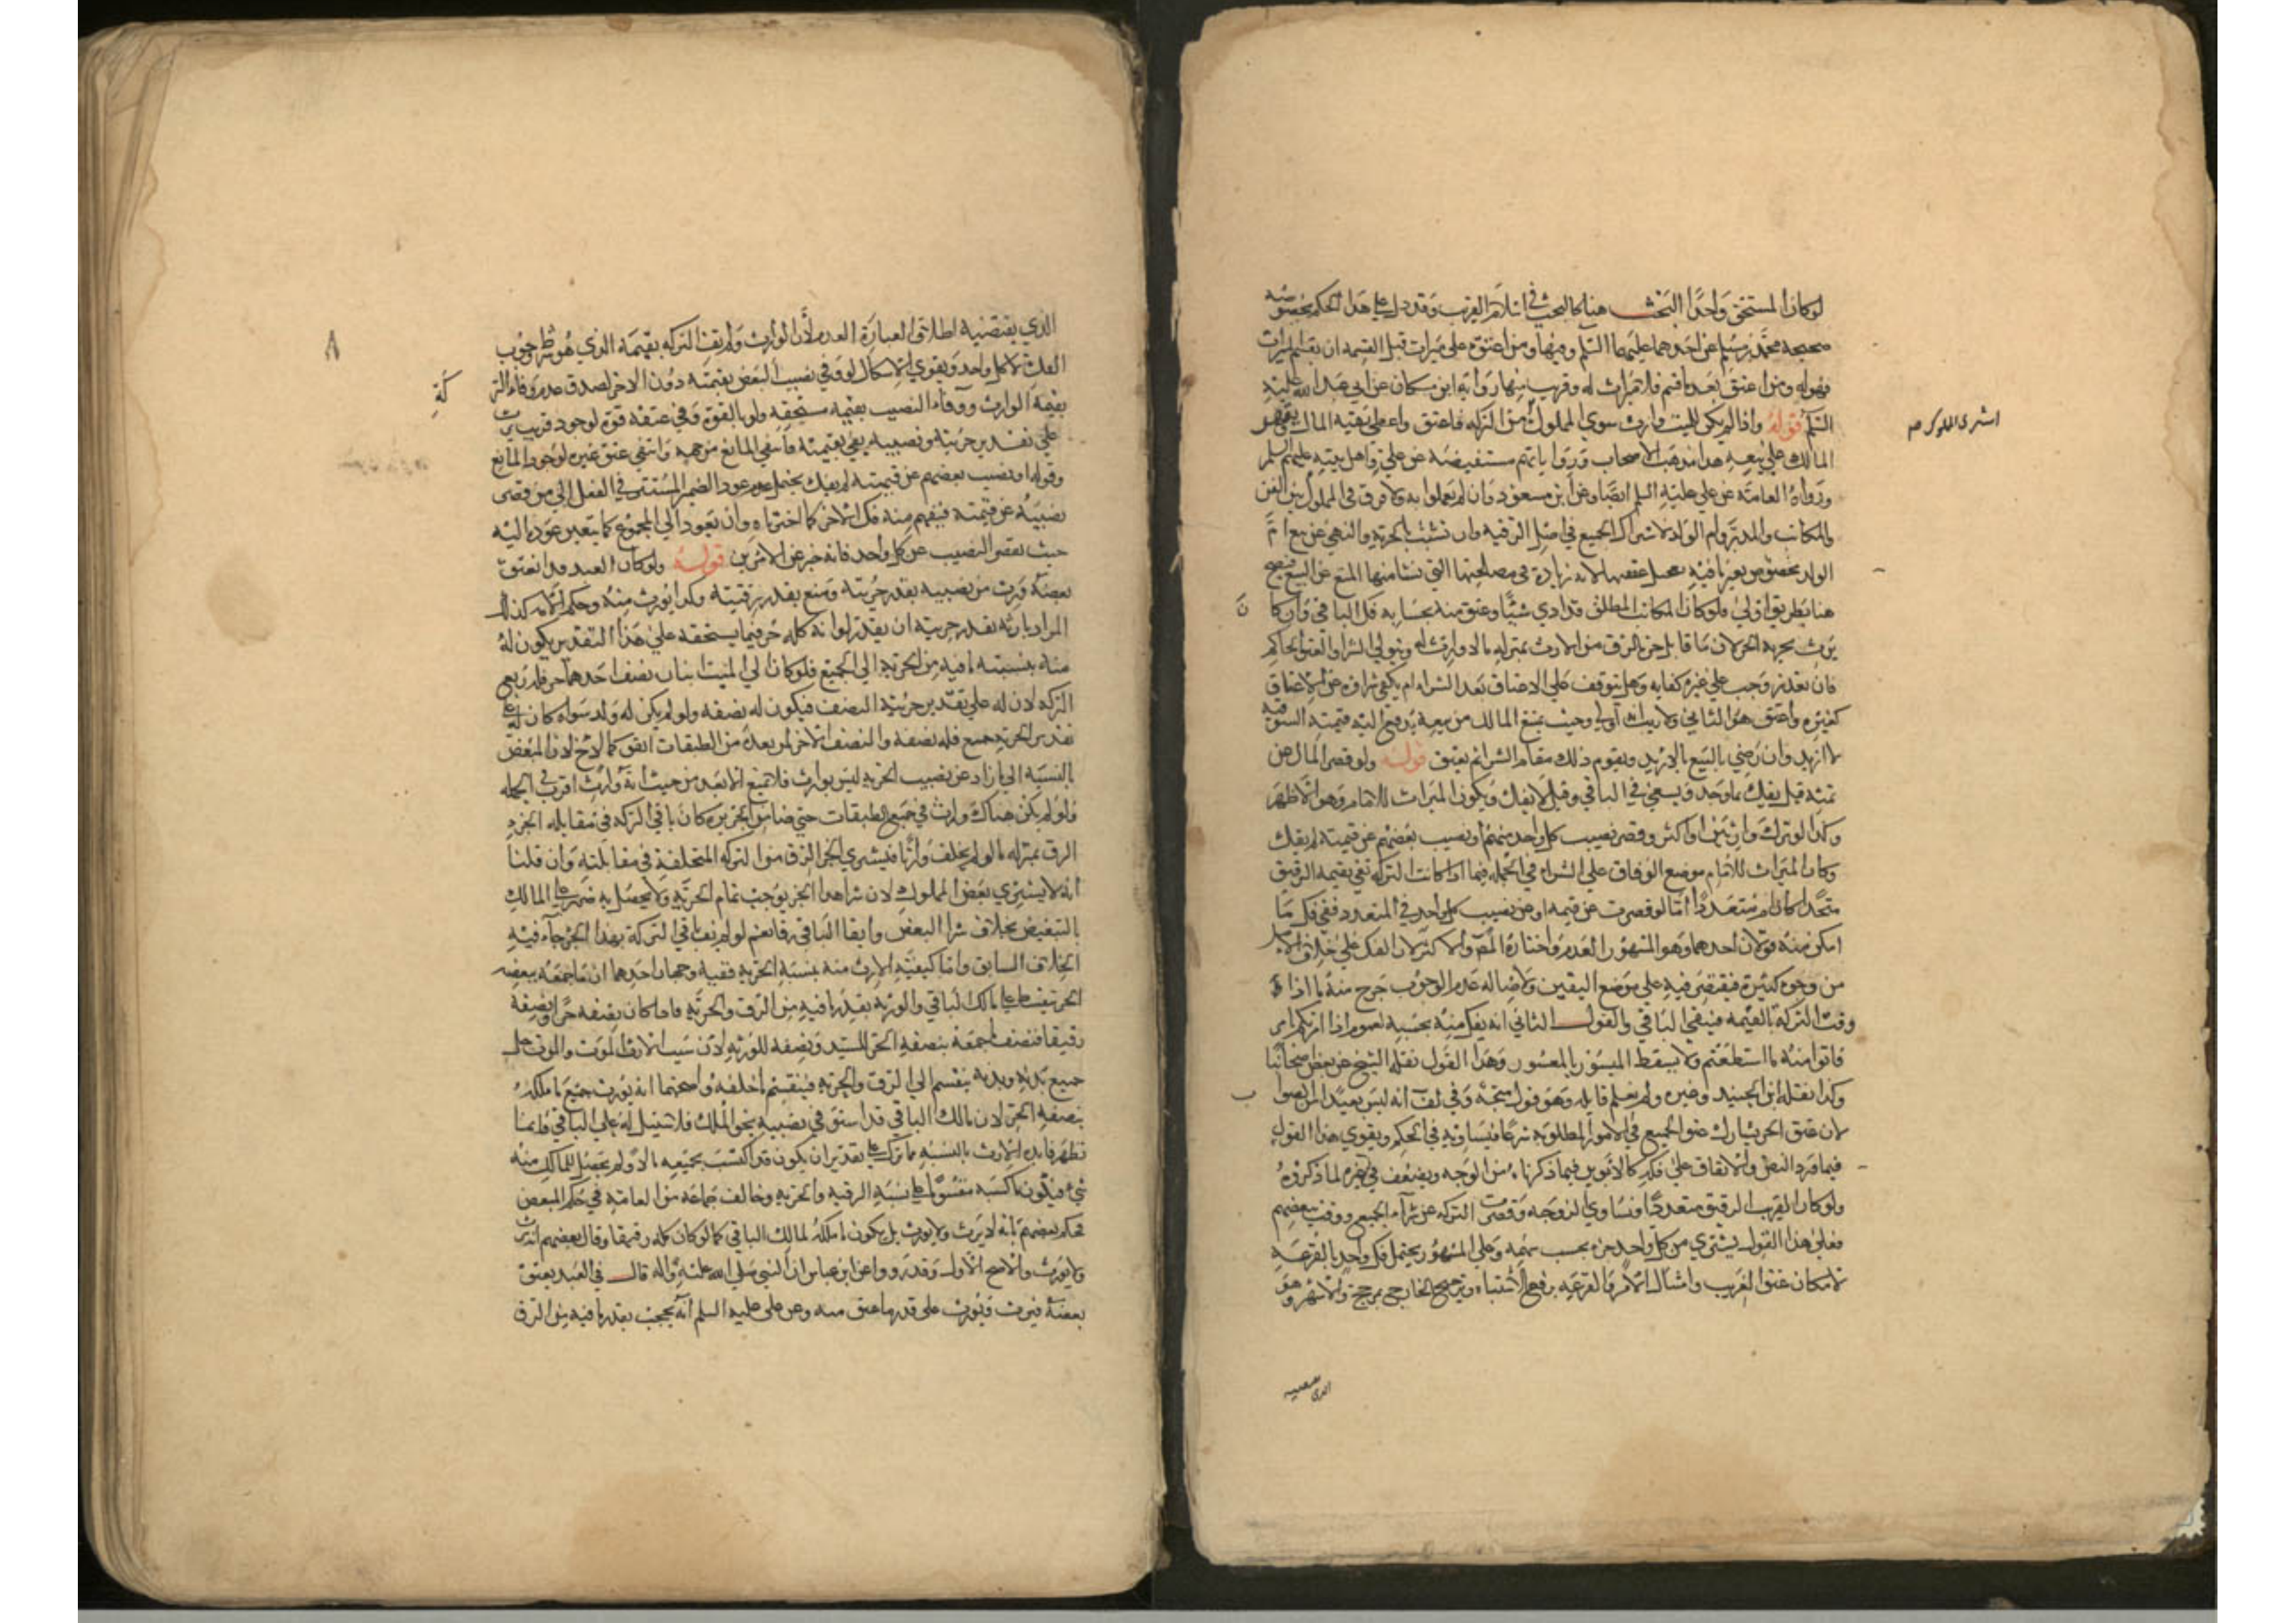 لو كان المستحق واحدا البحث هنا كالبحث في اسلام القريب وقد دل على هذا الحكم بخصوصه
صحيحة محمد بن مسلم عن احدهما عليهما السلم وفيها ومن اعتق على ميراث قبل القسمة ان يقسم الميراث
فهو له ومن اعتق بعد ما قسم فلا ميراث له وقريب منها رواية ابن مسكان عن ابي عبد الله عليه
السلم قوله واذا لم يكن للميت وارث سوى المملوك من التركة فاعتق واعطي بقية المال ويقهر
اشترى المملوك صح
المالك على بيعه هذا مذهب الاصحاب ورواياتهم مستفيضة عن علي واهل بيته عليهم السلم
ورواه العامة عن علي عليه السلم ايضا وعن ابن مسعود وان لم يعملوا به ولا فرق في المملوك بين القن
والمكاتب والمدبر وام الولد لاشتراك الجميع في اصل الرقية وان تشبث بالحرية والنهي عن بيع ام
الولد مخصوص بغير ما فيه تعجيل عتقها لانه زيادة في مصلحتها التي نشا منها المنع من البيع فيصح
هنا بطريق اولى فلو كان المكاتب المطلق قد ادى شيئا وعتق منه بحسابه فك الباقي وان كان
يرث بجزئه الحر لان ما قابل جزءه الرق من الارث بمنزلة ما لا وارث له ويتولى الشرا والعتق الحاكم
فان تعذر وجب على غيره كفاية وهل يتوقف على الاعتاق بعد الشراء ام يكفي شراؤه عن الاعتاق
كغيره واعتق هو الثاني ولا ريب انه اولى وحيث يمتنع المالك من بيعه يدفع اليه قيمته السوقية
لا ازيد وان رضي بالبيع بالازيد ويقوم ذلك مقام الشرا ثم يعتق قوله ولو قصر المال عن
ثمنه قيل يفك بما وجد ويسعى في الباقي وقيل لا يفك ويكون الميراث للامام وهو الاظهر
وكذا لو ترك وارثين او اكثر وقصر نصيب كل واحد منهم او نصيب بعضهم عن قيمته لم يفك
وكان الميراث للامام موضع الوفاق على الشراء في الجملة فيما اذا كانت التركة تفي بقيمة الرقيق
متحدا كان ام متعددا اما لو قصرت عن قيمته او عن نصيب كل واحد في المتعدد ففي فك ما
امكن منه قولان احدهما وهو المشهور العدم واختاره المصـ والاكثر لان الفك على خلاف الاصل
من وجوه كثيرة فيقتصر فيه على موضع اليقين ولاصالة عدم الوجوب خرج منه ما اذا
وفت التركة بالقيمة فيبقى الباقي والقول الثاني انه يفك منه بحسبه لعموم اذا امرتكم بامر
فاتوا منه ما استطعتم ولا يسقط الميسور بالمعسور وهذا القول نقله الشيخ عن بعض اصحابنا
وكذا نقله ابن الجنيد وغيره ولم نعلم قايله وهو قول متجه وفي لف انه ليس بعيدا من الصواب
لان عتق الجزء يشارك عتق الجميع في الامور المطلوبة شرعا فيساويه في الحكم ويقوى هذا القول
فيما ورد النص والاتفاق على فكه كالابوين فيما ذكرناه من الوجه ويضعف في غيره لما ذكروه
ولو كان القريب الرقيق متعددا وتساوى الزوجة وقصرت التركة عن شراء الجميع ووفت ببعضهم
فعلى هذا القول يشترى من كل واحد جزء بحسب سهمه وعلى المشهور يحتمل فك واحد بالقرعة
لامكان عتق القريب وامتثال الامر والقرعة رفع الاشتباه وترجيح الخارج مرجح والاشهر وهو
الذي يقتضيه
الذي يقتضيه اطلاق العبارة العدم لان الوارث ولم تف التركة بقيمته الذي هو شرط وجوب
الفك لا كل واحد ويقوى الاشكال لو وفى نصيب البعض بقيمته دون الاخر لصدق عدم وفاء التركة
بقيمة الوارث ووفاء النصيب بقيمة مستحقه ولو بالقوة وفي عتقه قوة لوجود قريب يرث
على تقدير حريته ونصيبه يفي بقيمته فانتفى المانع من جهته وانتفى عتق غيره لوجود المانع
وقوله او نصيب بعضهم عن قيمته لم يفك يحتمل عود الضمير المستتر في الفعل الى من قصر
نصيبه عن قيمته فيفهم منه فك الاخر كما اخترناه وان يعود الى المجموع كما يتعين عوده اليه
حيث يقصر النصيب عن كل واحد فانه خبر عن الامرين قوله ولو كان العبد قد انعتق
بعضه ورث من نصيبه بقدر حريته ومنع بقدر رقيته وكذا يورث منه وحكم الامة كذلك
المراد بارثه بقدر حريته ان يقدر لو انه كله حر فيما يستحقه على هذا التقدير يكون له
منه بنسبة ما فيه من الحرية الى الجميع فلو كان للميت ابنان نصف احدهما حر فله ربع
التركة لان له على تقدير حريته النصف فيكون له نصفه ولو لم يكن له ولد سواه كان له على
تقدير الحرية جميع فله نصفه والنصف الاخر لمن بعده من الطبقات اتفق كالاخ لان المبعض
بالنسبة الى ما زاد عن نصيب الحرية ليس بوارث فلا تمنع الابعد من حيث انه وارث اقرب في الجملة
ولو لم يكن هناك وارث في جميع الطبقات حتى ضامن الجريرة كان باقي التركة في مقابلة الجزء
الرق بمنزلة ما لو لم يخلف وارثا فيشترى الجزء الرق من التركة المتخلفة في مقابلته وان قلنا
انه لا يشترى بعض المملوك لان شراء هذا الجزء يوجب تمام الحرية ولا يحصل به ضرر على المالك
بالتبعيض بخلاف شرا البعض وابقا الباقي رقا نعم لو لم يف باقي التركة بهذا الجزء جاء فيه
الخلاف السابق واما كيفية الارث منه بنسبة الحرية ففيه وجهان احدهما ان ما جمعه ببعضه
الحر يقسم على مالك الباقي والورثة بقدر ما فيه من الرق والحرية فاذا كان نصفه حرا ونصفه
رقيقا فنصف ما جمعه بنصفه الحر للسيد ونصفه للورثة لان سبب الارث الموت والموت حل
جميع بدنه وبدنه ينقسم الى الرق والحرية فينقسم ما خلفه واصحهما انه يورث جميع ما ملكه
بنصفه الحر لان مالك الباقي قد استوفى نصيبه بحق الملك فلا سبيل له على الباقي وانما
تظهر فايدة الارث بالنسبة مما ترك على تقدير ان يكون قد اكتسب بجميعه مالا ولم يحصل للمالك منه
شيء فيكون ما كسبه مقسوما على نسبة الرقية والحرية وخالف جماعة من العامة في حكم المبعض
فحكم بعضهم بانه لا يرث ولا يورث بل يكون ما ملكه لمالك الباقي كما لو كان كله رقيقا وقال بعضهم انه يرث
ولا يورث والاصح الاول وقد رووا عن ابن عباس ان النبي صلى الله عليه واله قال في العبد يعتق
بعضه فيرث ويورث على قدر ما عتق منه وعن علي عليه السلم انه يحجب بقدر ما فيه من الرق
٨